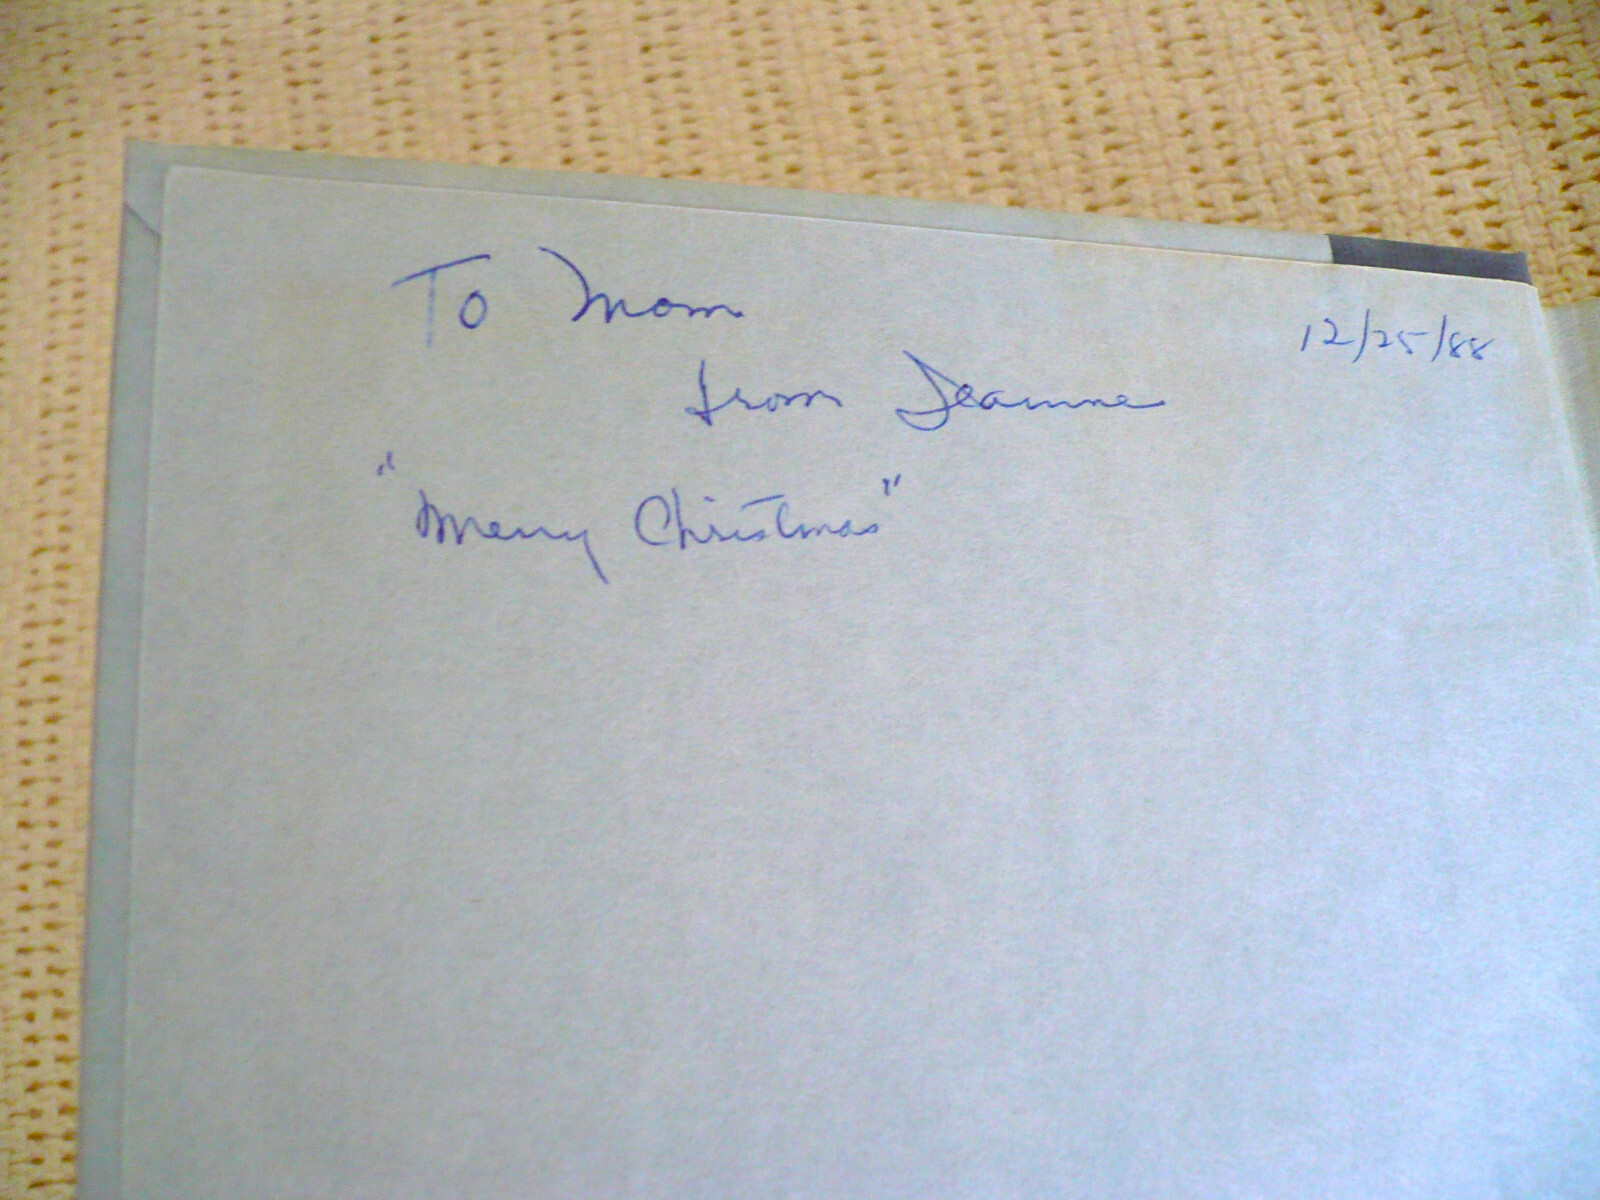 To Mom
12/25/88
from Jeanne
"Merry Christmas"